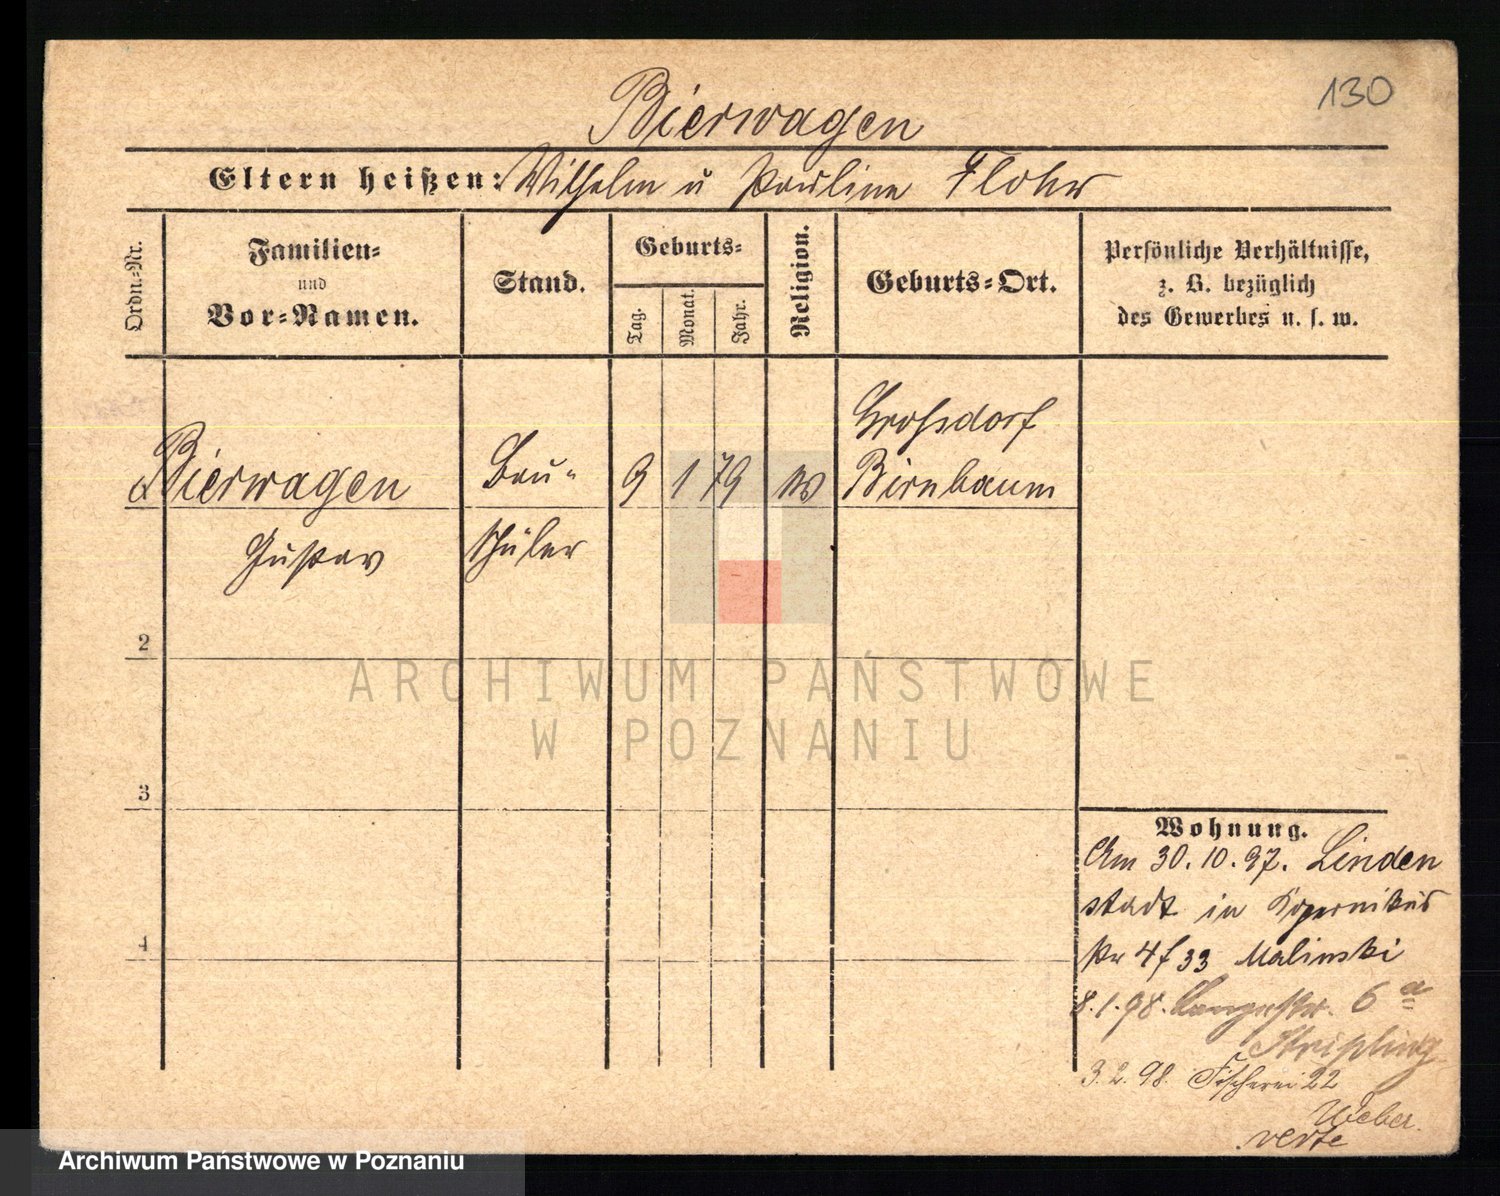 130
Bierwagen
Eltern heißen: Wilhelm u Pauline Flohr
Ordn.-Nr.
Familien-
und
Vor-Namen.
Stand.
Geburts-
Tag.
Monat.
Jahr.
Religion.
Geburts-Ort.
Persönliche Verhältnisse,
z. B. bezüglich
des Gewerbes u. s. w.
Bierwagen
Gustav
Bau-
schüler
9 1 79
Grossdorf
Birnbaum
2
3
4
ARCHIWUM PAŃSTWOWE
W POZNANIU
Wohnung.
Am 30.10.97. Linden
stadt in Kopernikus
str 4 f 33 Malinski
8.1.98. Langestr. 6a
Stripling
3.2.98. Fischerei 22
Weber.
verte
Archiwum Państwowe w Poznaniu